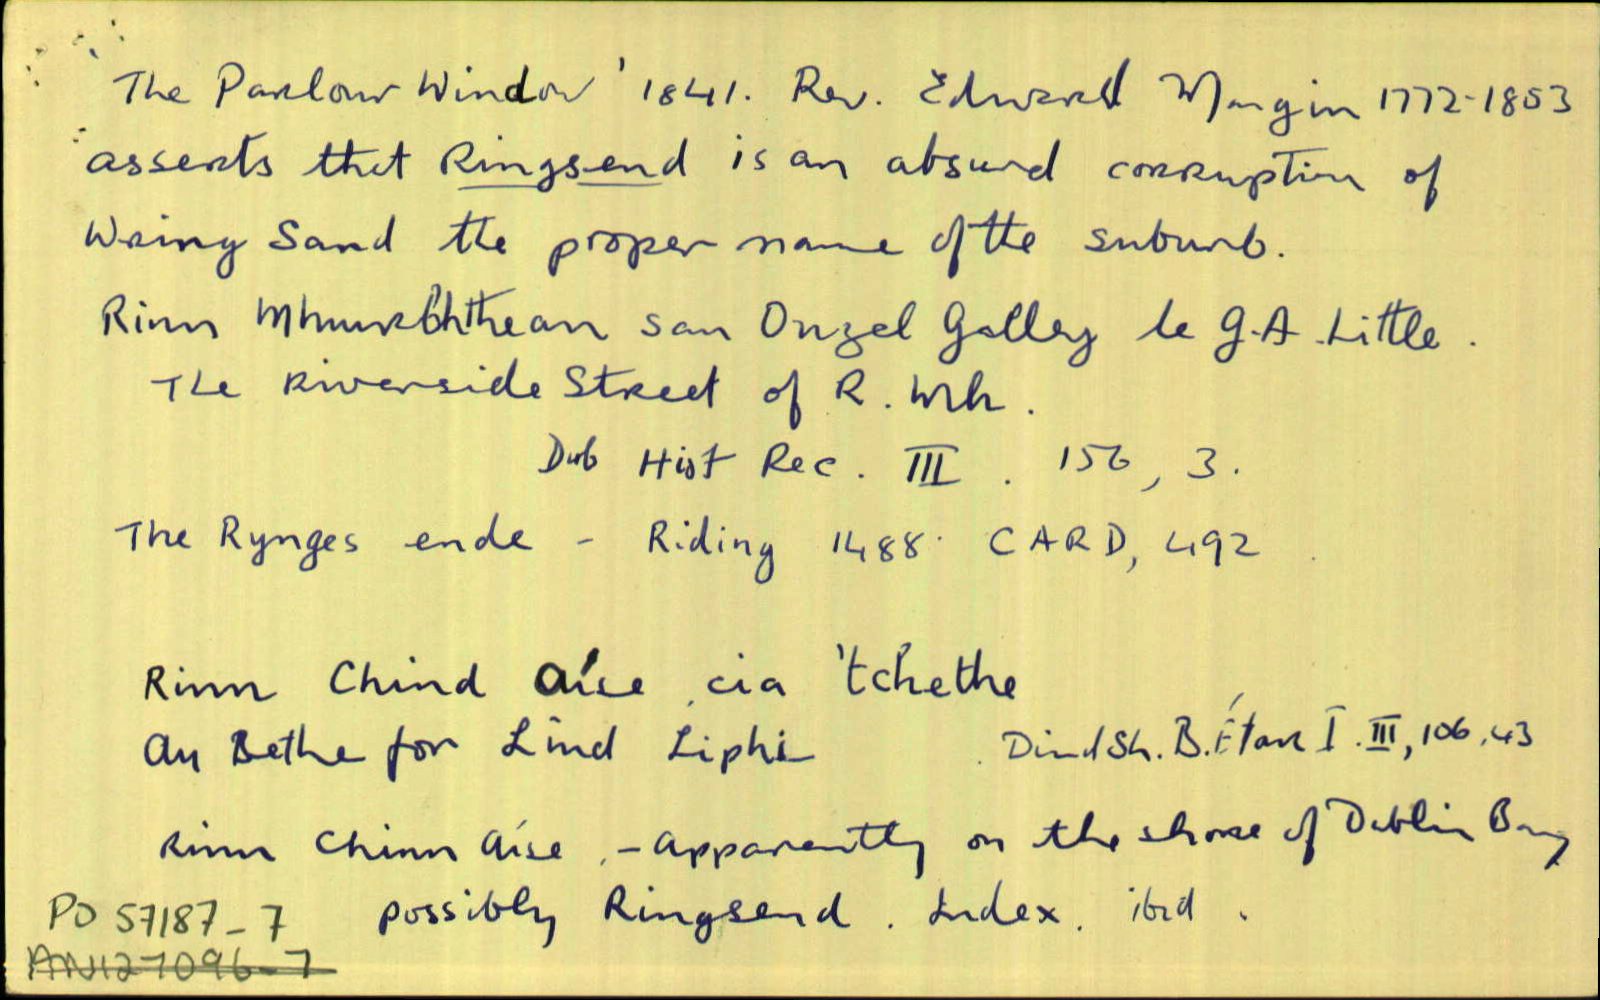 The Parlour Window' 1841. Rev. Edward Mangin 1772-1853
asserts that Ringsend is an absurd corruption of
Wring Sand the proper name of the suburb.
Rinn Mhuirbhthean san Ouzel Galley le G.A. Little.
The Riverside Street of R. Mh.
Dub Hist Rec. III. 156, 3.
The Rynges ende - Riding 1488. CARD, 492
Rinn Chind Aíse, cia 'tchethe
Ay Bethe for Lind Liphi
DindSh. B. Étar I. III, 106, 43
Rinn Chinn Aíse, - apparently on the shore of Dublin Bay
possibly Ringsend. Index. ibid.
PO 57187-7
AN127096-7